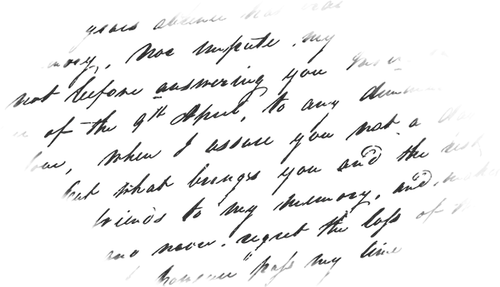 years absence has
nor impute my
not before answering you
of the 9th April, to any
when I assure you not a
but what brings you and the
friends to my memory, and
never regret the loss of
however "pass my time